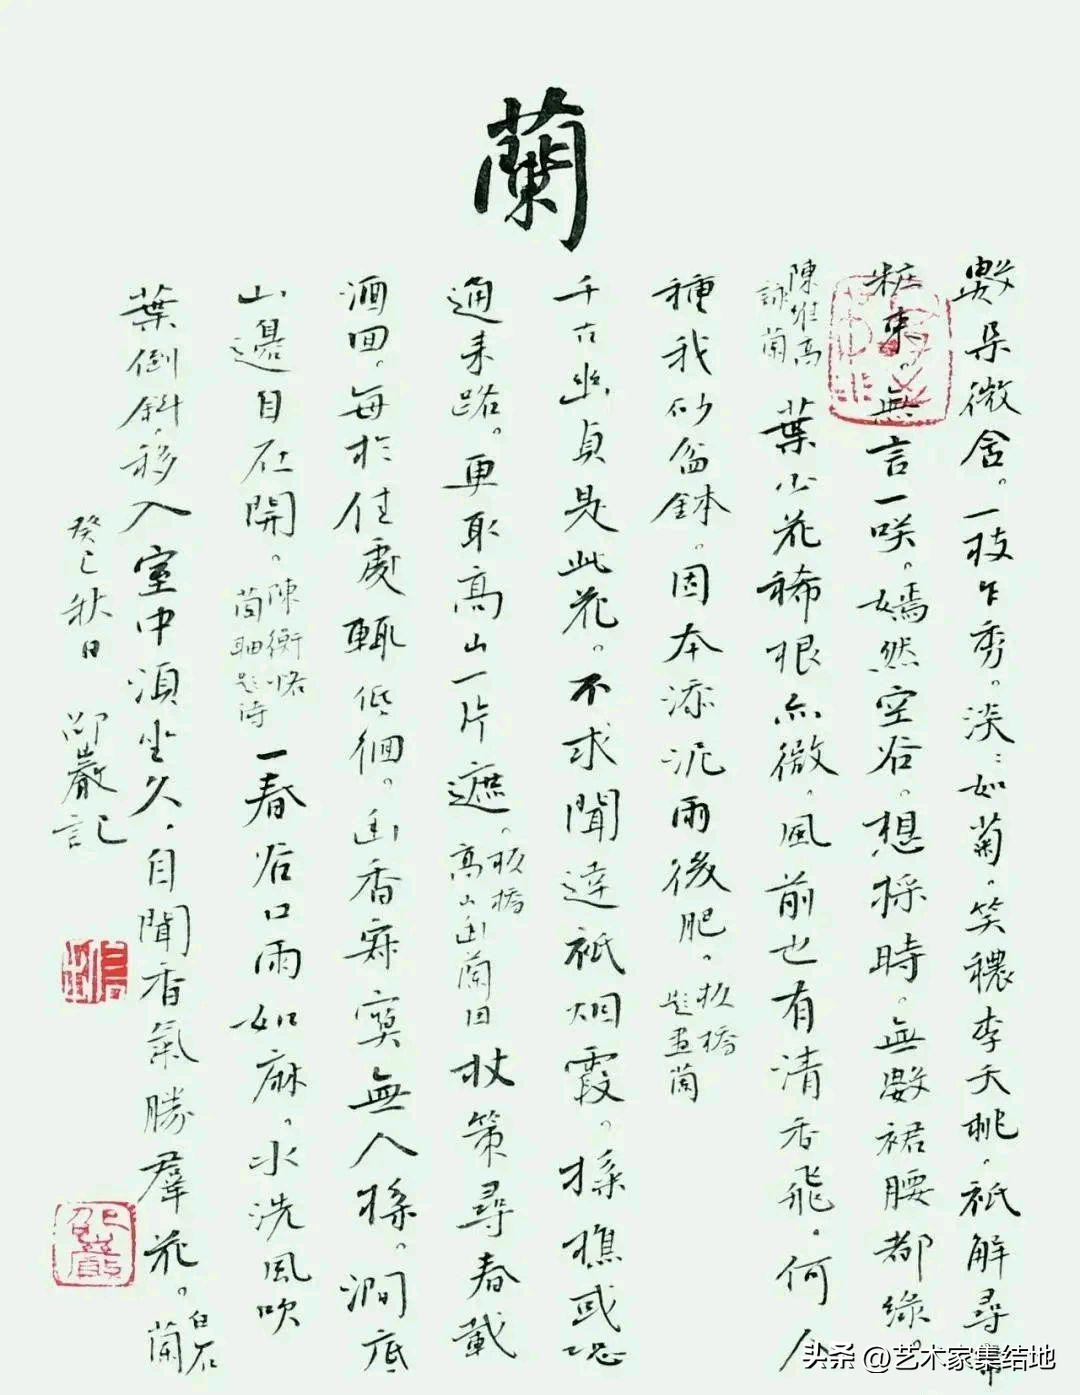 蘭
數朵微含。一枝乍秀。淡〻如菊。笑穠李夭桃。祇解尋常
粧束。無言一咲。嫣然空谷。想採時。無數裙腰都綠。
陳維高
詠蘭
葉少花稀根亦微。風前也有清香飛。何人
種我砂盆鉢。因本添泥雨後肥。
板橋
題畫蘭
千古幽貞是此花。不求聞達祇烟霞。採樵或恐
通来路。更取高山一片遮。
板橋
高山幽蘭图
杖策尋春載
酒回。每於佳處輒低徊。幽香寂寞無人採。澗底
山邊自在開。
陳衡恪
蘭軸題詩
一春谷口雨如麻。水洗風吹
葉倒斜。移入室中須坐久。自聞香氣勝群花。
白石
蘭
癸巳秋日 邵巖記
邵巖
头条 @艺术家集结地